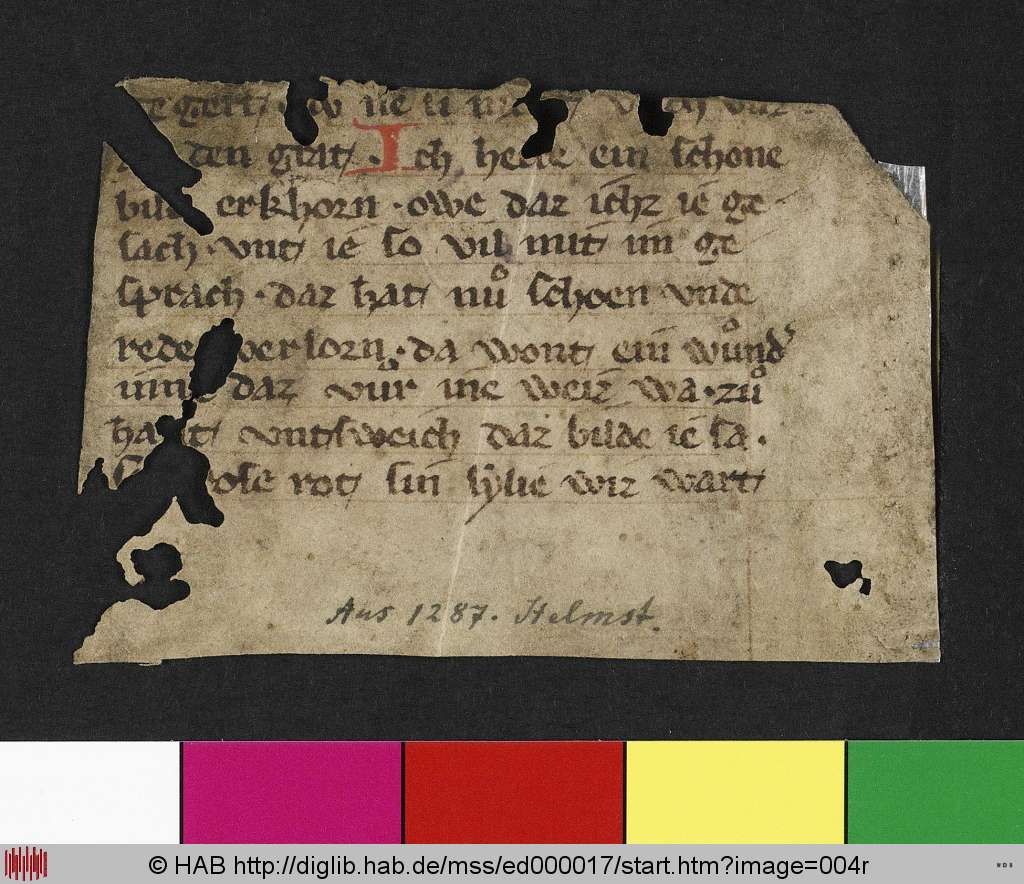 ten grat · Ich hette ein schone
bild erkhorn · owe daz ichz ie ge ·
sach · vnt ie so vil mit im ge
sprach · daz hat nuͦ schoen vnde
rede verlorn · da wont ein wuͦnd͛
daz vuͦr ine weiz wa · zuͦ
vntsweich daz bilde ie sa ·
rose rot sin lylie wiz wart
Aus 1287. Helmst.
© HAB http://diglib.hab.de/mss/ed000017/start.htm?image=004r